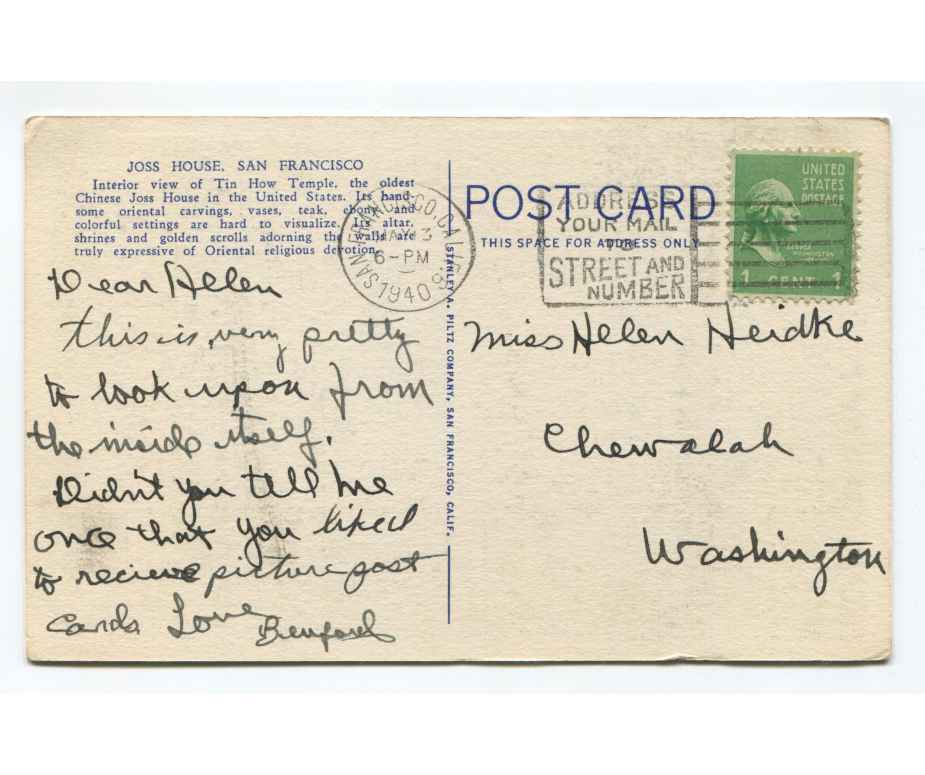 JOSS HOUSE, SAN FRANCISCO
Interior view of Tin How Temple, the oldest
Chinese Joss House in the United States. Its hand
some oriental carvings, vases, teak, ebony and
colorful settings are hard to visualize. Its altar,
shrines and golden scrolls adorning the walls are
truly expressive of Oriental religious devotion.
Dear Helen
this is, very pretty
to look upon from
the inside itself.
Didn't you tell me
once that you liked
to recieve picture post
Cards Love
STANLEY A. PILTZ COMPANY, SAN FRANCISCO, CALIF.
POST CARD
THIS SPACE FOR ADDRESS ONLY
SAN FRANCISCO, CALIF.
3
6-PM
1940
ADDRESS
YOUR MAIL
TO
STREET AND
NUMBER
UNITED
STATES
POSTAGE
GEORGE
WASHINGTON
1 CENT 1
Miss Helen Heidke
Chewalah
Washington